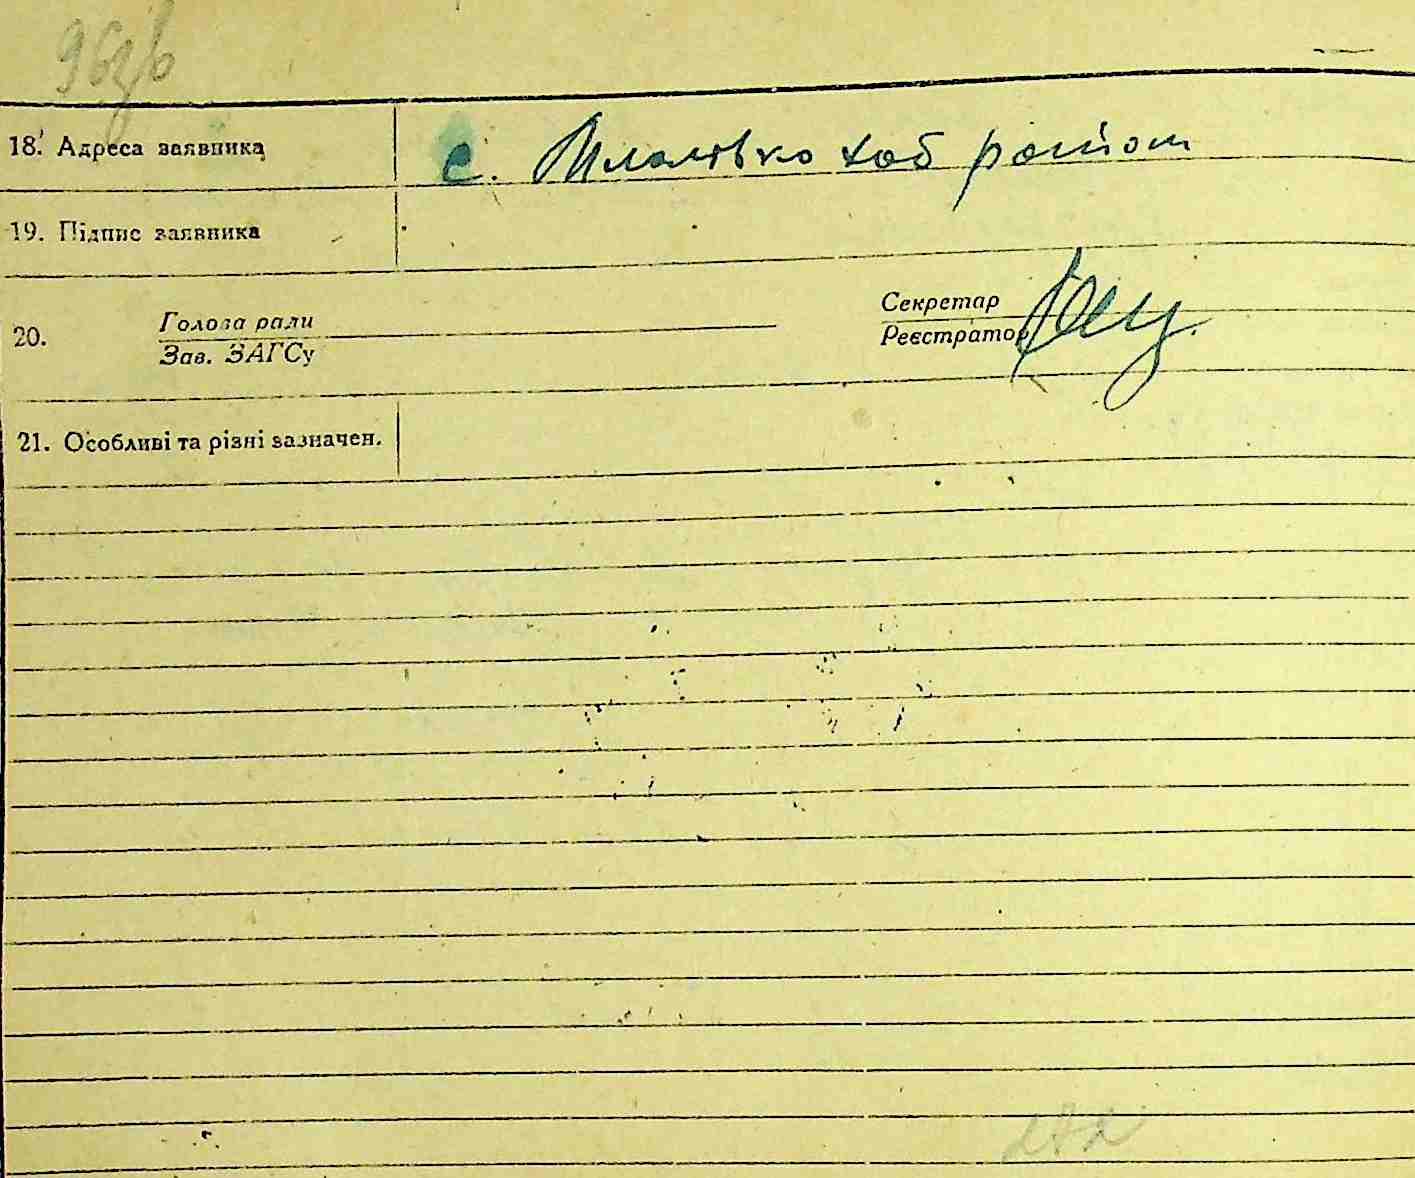 96зв
18. Адреса заявника с. район
19. Підпис заявника
20. Голова ради Секретар
Зав. ЗАГСу Реєстратор
21. Особливі та різні зазначен.